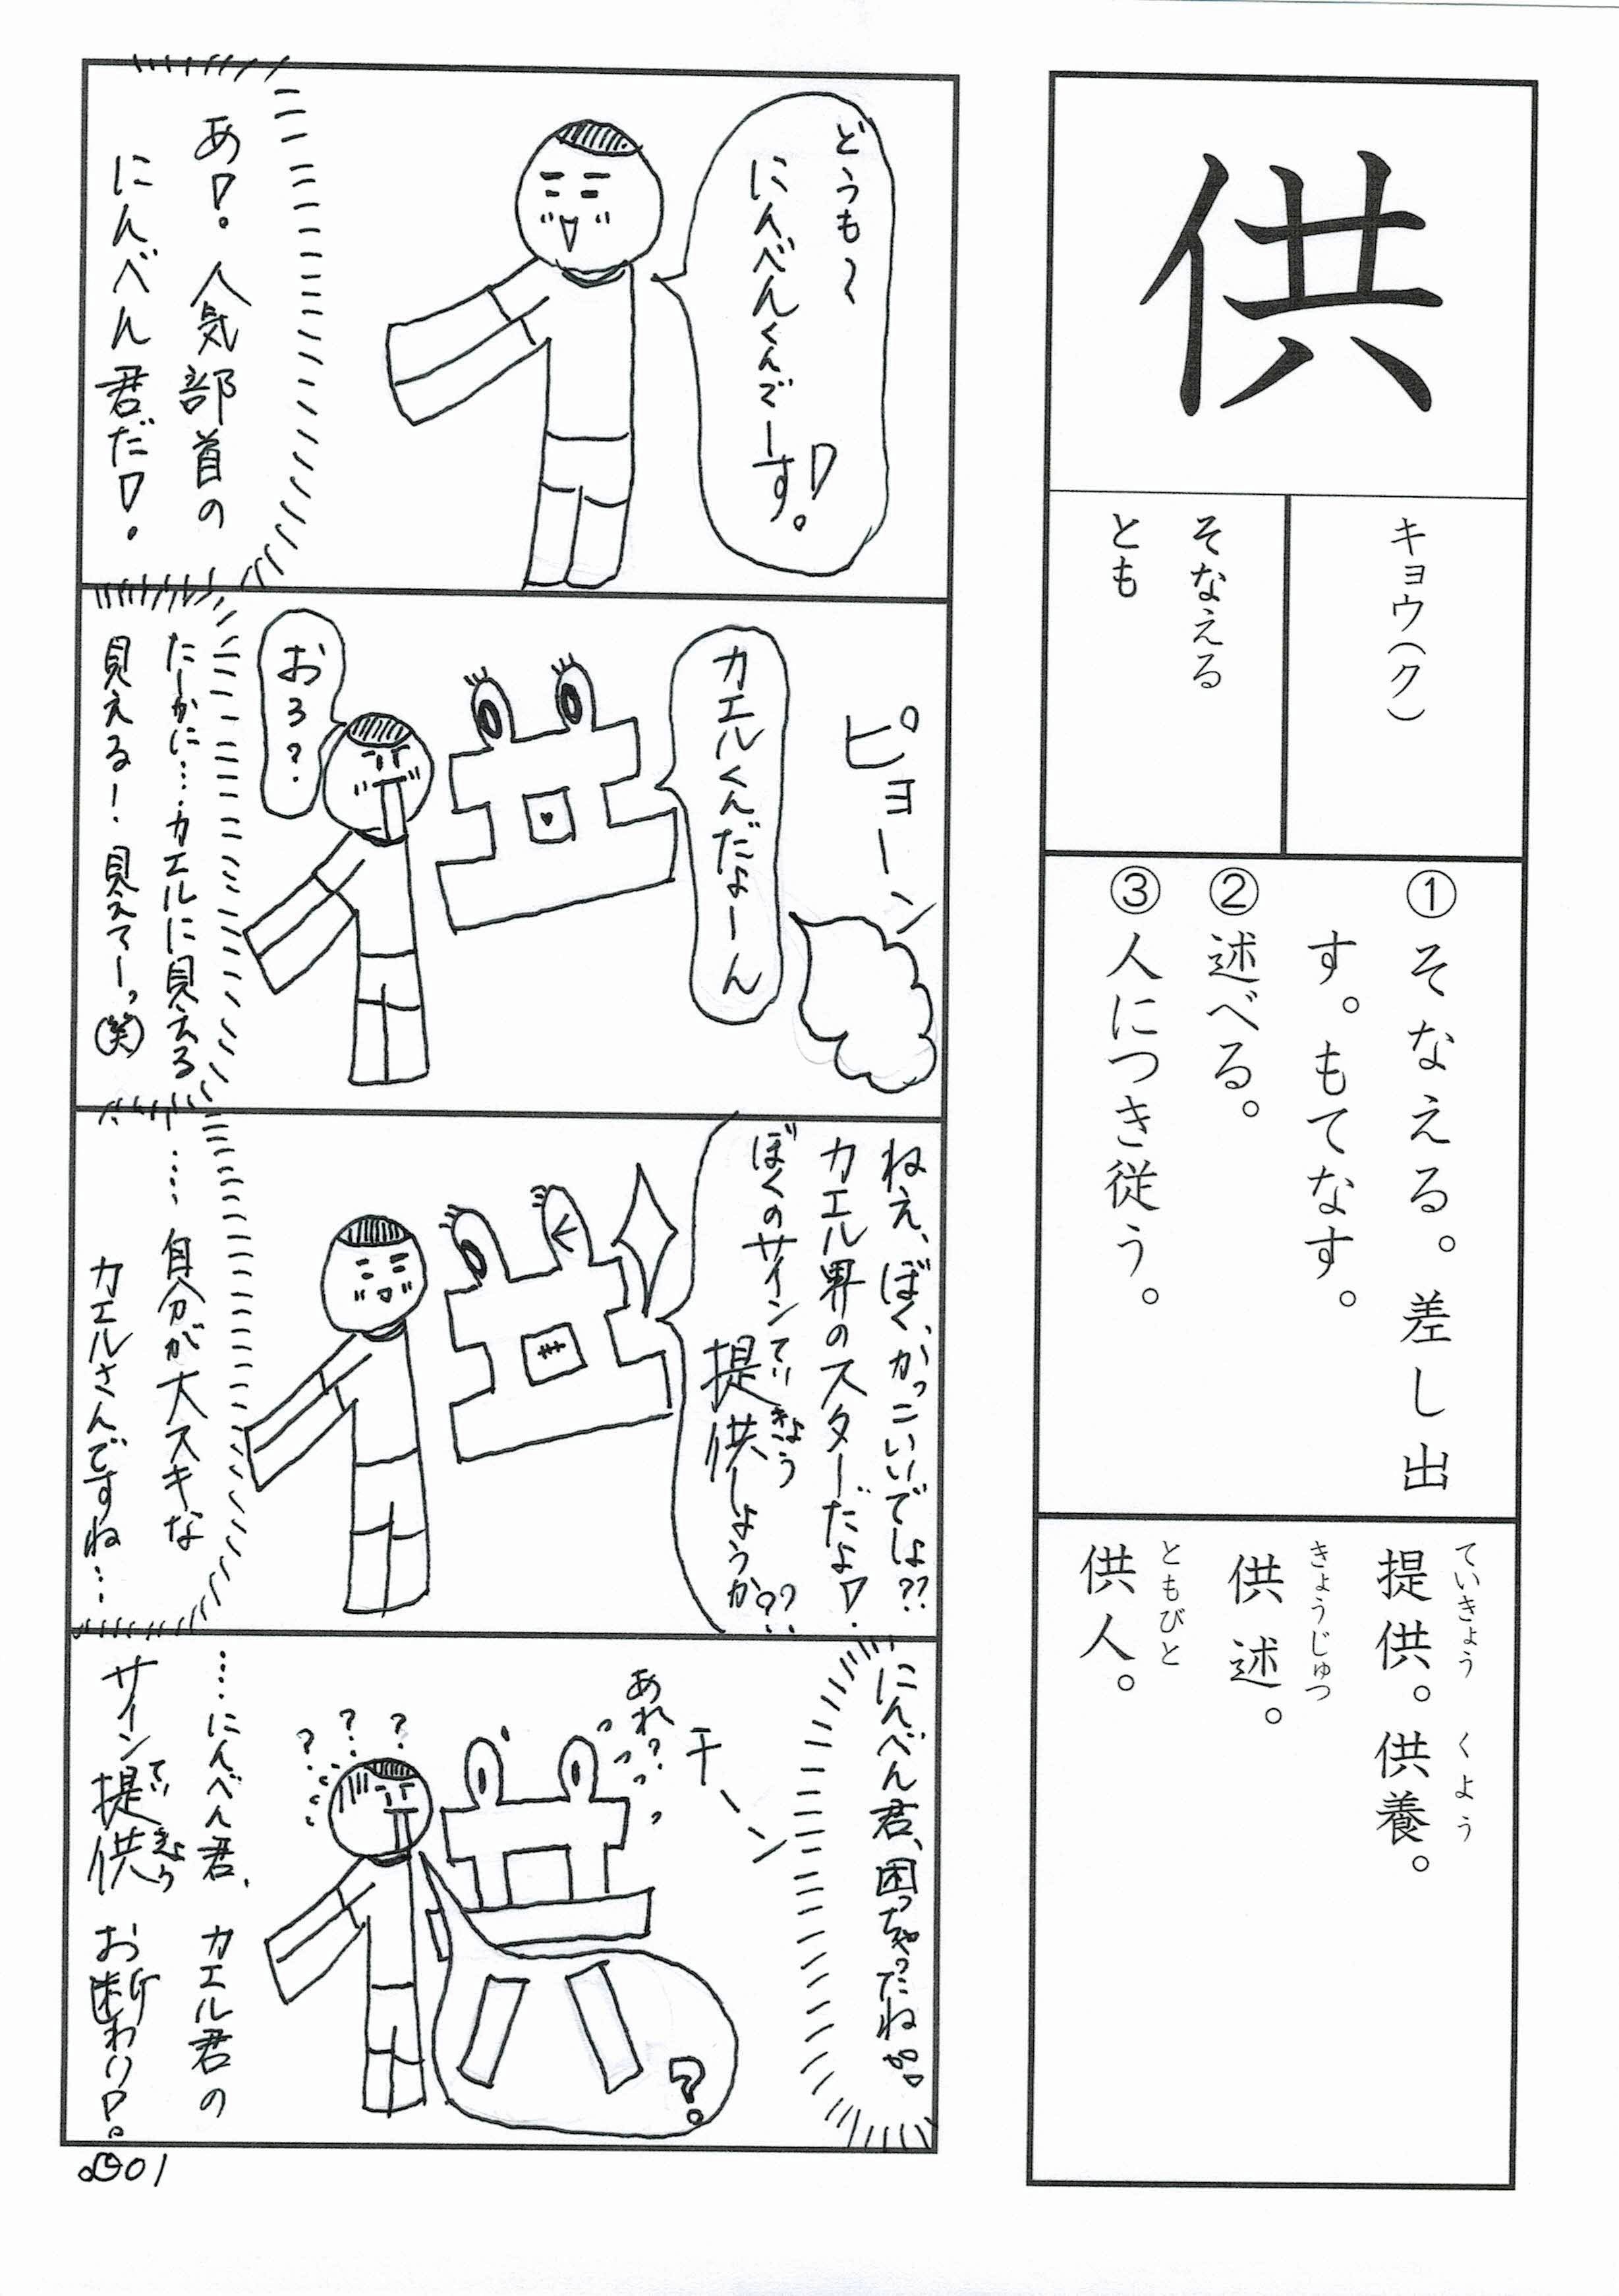 供
キョウ（ク）
そなえる
とも
①そなえる。差し出
す。もてなす。
②述べる。
③人につき従う。
ていきょう　くよう
提供。供養。
きょうじゅつ
供述。
ともびと
供人。
どうも〜
にんべんくんでーす！
あ！人気部首の
にんべん君だ！
ピョーン
カエルくんだよーん
おろ？
たーかに…カエルに見える
見える！見えてーっ㊗
ねえ、ぼく、かっこいいでしょ??
カエル界のスターだよ！
ぼくのサイン提供しようか??
ていきょう
……自分が大スキな
カエルさんですね…
にんべん君、困っちゃったね
チーン
あれ?
? ? ?
?
…にんべん君、カエル君の
サイン提供お断わり！
ていきょう